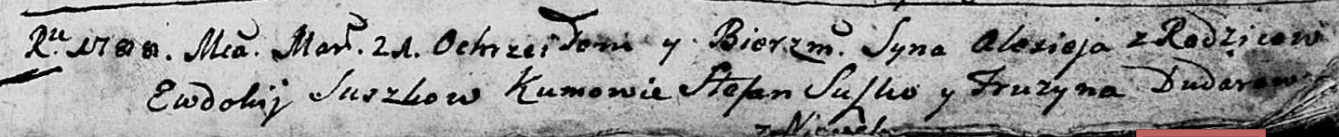 Rku 1788. Mca. Mar. 21. Ochrzcił Tom y Bierzm. Syna Alexieja z Rodzicow
Ewdokij Suszkow Kumowie Stefan Suszko y Fruzyna Dudarow